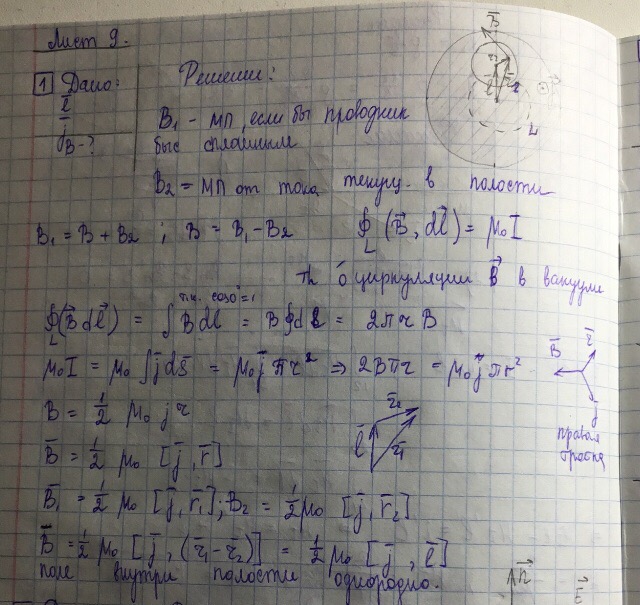 Лист 9.
1 Дано: Решение:
l⃗
j⃗
B - ?
B₁ - МП, если бы проводник
был сплошным
B₂ = МП от тока текущ. в полости
B₁ = B + B₂ ; B = B₁ - B₂ ∮_L (B⃗, dl⃗) = μ₀I
Th о циркуляции B⃗ в вакууме
т.к. cos0° = 1
∮_L (B⃗ dl⃗) = ∫ B dl = B∮dl = 2πrB
μ₀I = μ₀ ∫j⃗ds⃗ = μ₀j πr² ⇒ 2Bπr = μ₀j πr²
B = 1/2 μ₀ j r
B⃗ = 1/2 μ₀ [j⃗, r⃗]
B⃗₁ = 1/2 μ₀ [j⃗, r⃗₁]; B₂ = 1/2 μ₀ [j⃗, r⃗₂]
B⃗ = 1/2 μ₀ [j⃗, (r⃗₁ - r⃗₂)] = 1/2 μ₀ [j⃗, l⃗]
поле внутри полости однородно.
B⃗
L
l⃗
r⃗₂
r⃗₁
B⃗
r⃗
j
правая
тройка
n⃗